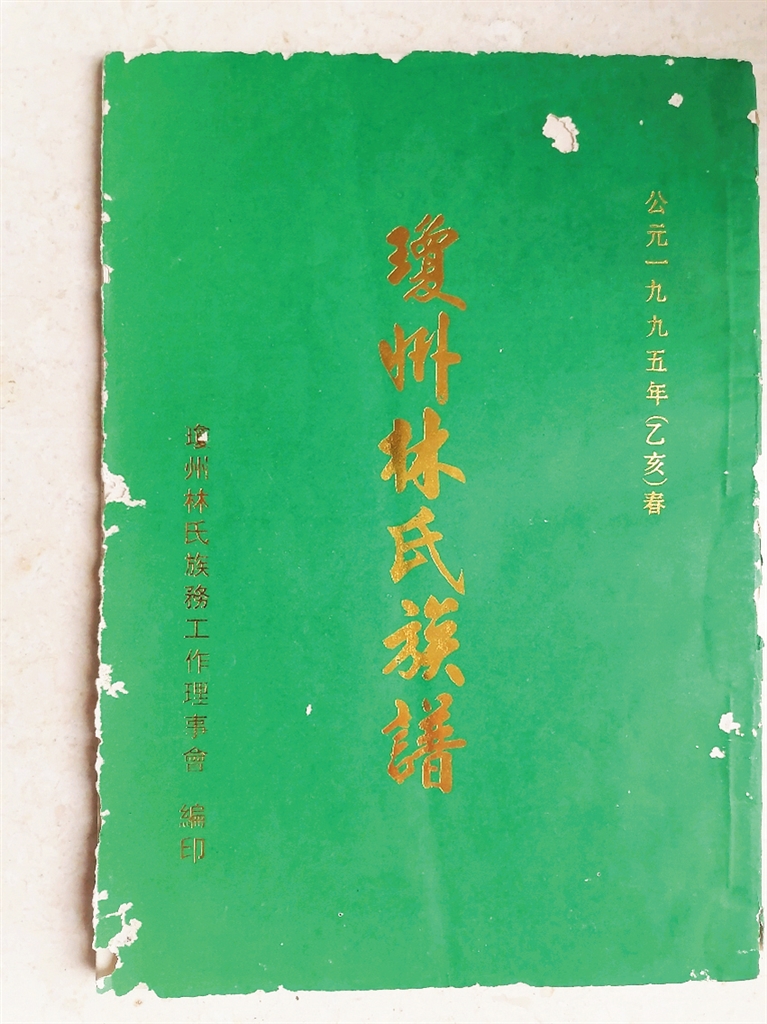 公元一九九五年(乙亥)春
瓊州林氏族譜
瓊州林氏族務工作理事會 編印